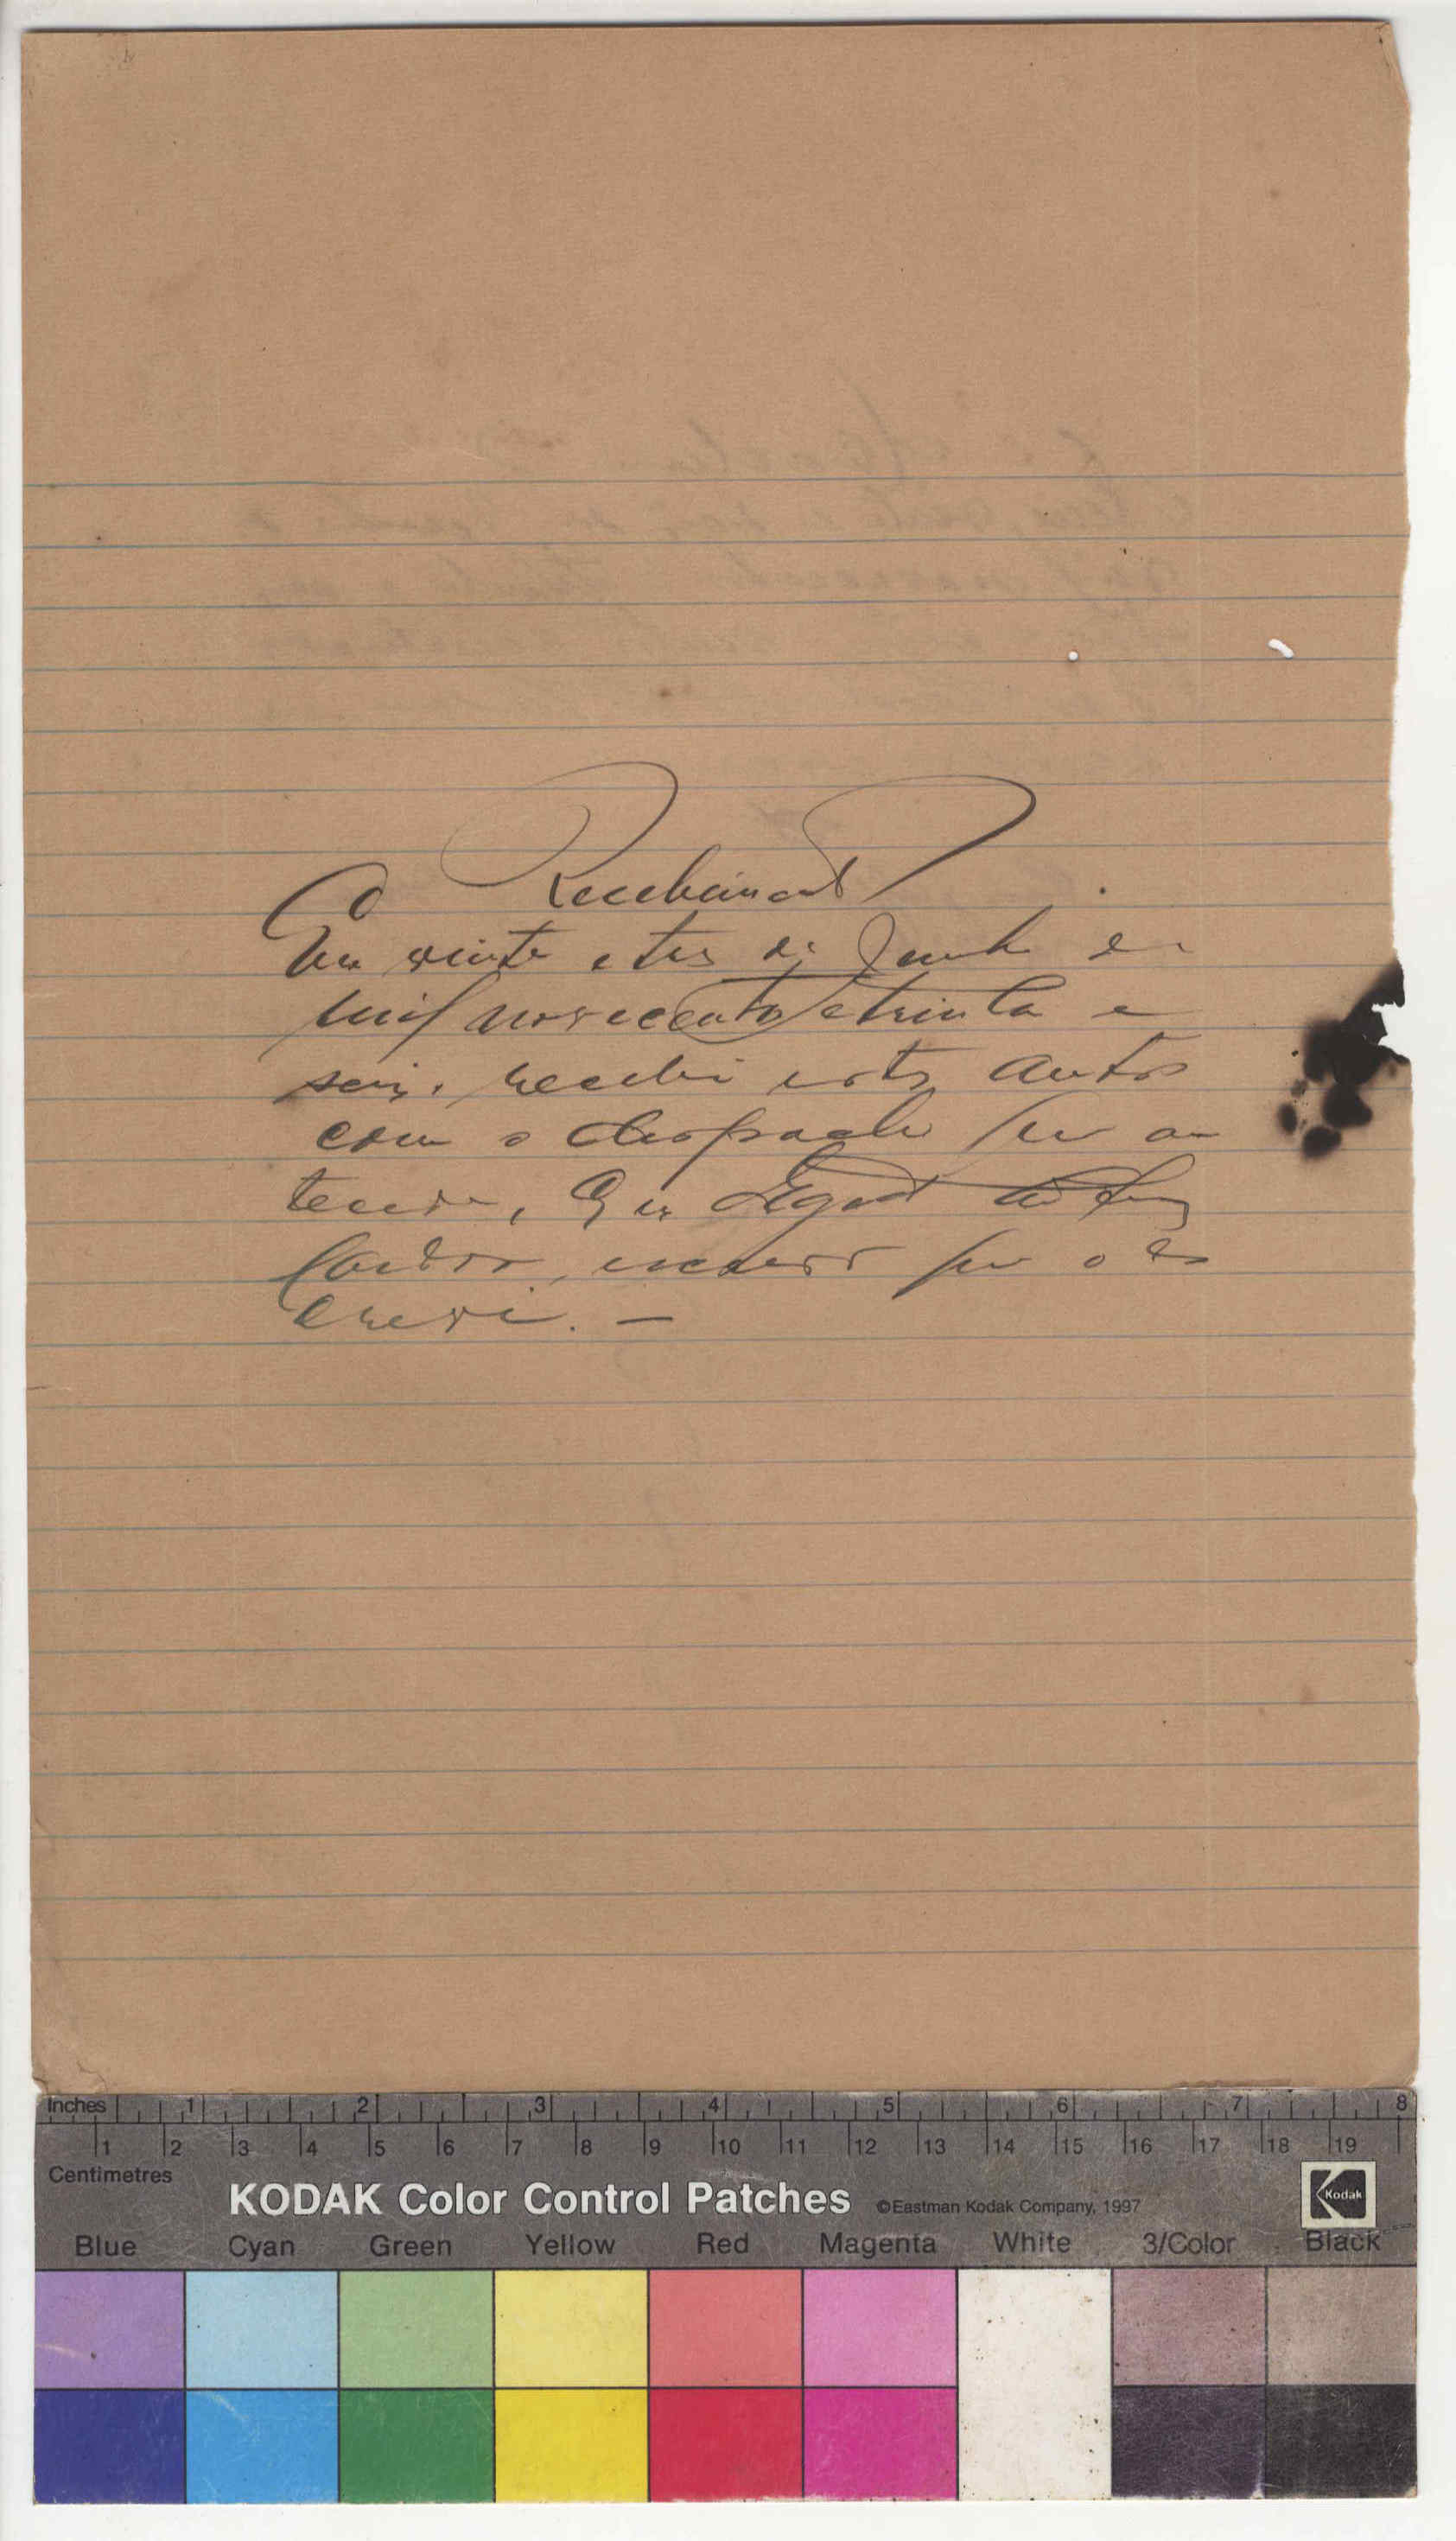 Recebimento
Em vinte e tres de Junho de
mil novecentos e trinta e
seis, recebi estes autos
com o despacho por an
terior, Eu Edgard
Castro, escrivão por o es
crevi. —
Inches 1 2 3 4 5 6 7 8
1 2 3 4 5 6 7 8 9 10 11 12 13 14 15 16 17 18 19
Centimetres
KODAK Color Control Patches ©Eastman Kodak Company, 1997 Kodak
Blue Cyan Green Yellow Red Magenta White 3/Color Black